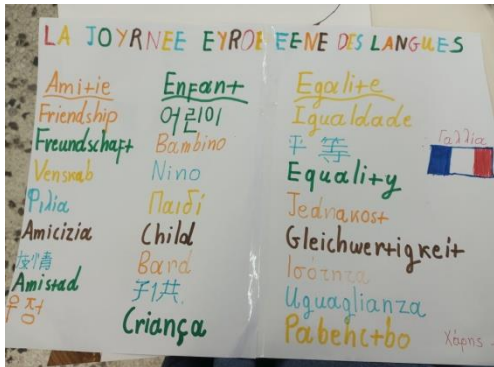 LA JOYRNEE EYROPEENE DES LANGUES
Amitie
Friendship
Freundschaft
Venskab
Φιλία
Amicizia
友情
Amistad
우정
Enfant
어린이
Bambino
Nino
Παιδί
Child
Bard
子供
Criança
Egalite
Igualdade
平等
Equality
Jednakost
Gleichwertigkeit
Ισότητα
Uguaglianza
Pabehctbo
Γαλλία
Χάρης